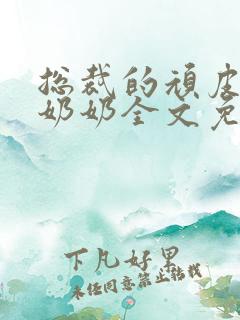 总裁的顽皮
奶奶全文免
下凡好果
未经同意禁止转载